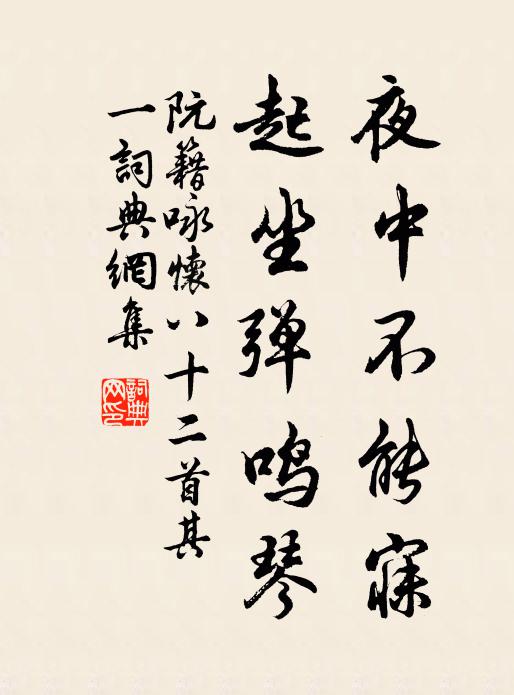 夜中不能寐
起坐弹鸣琴
阮籍咏懷八十二首其
一詞典網集
詞典
网印